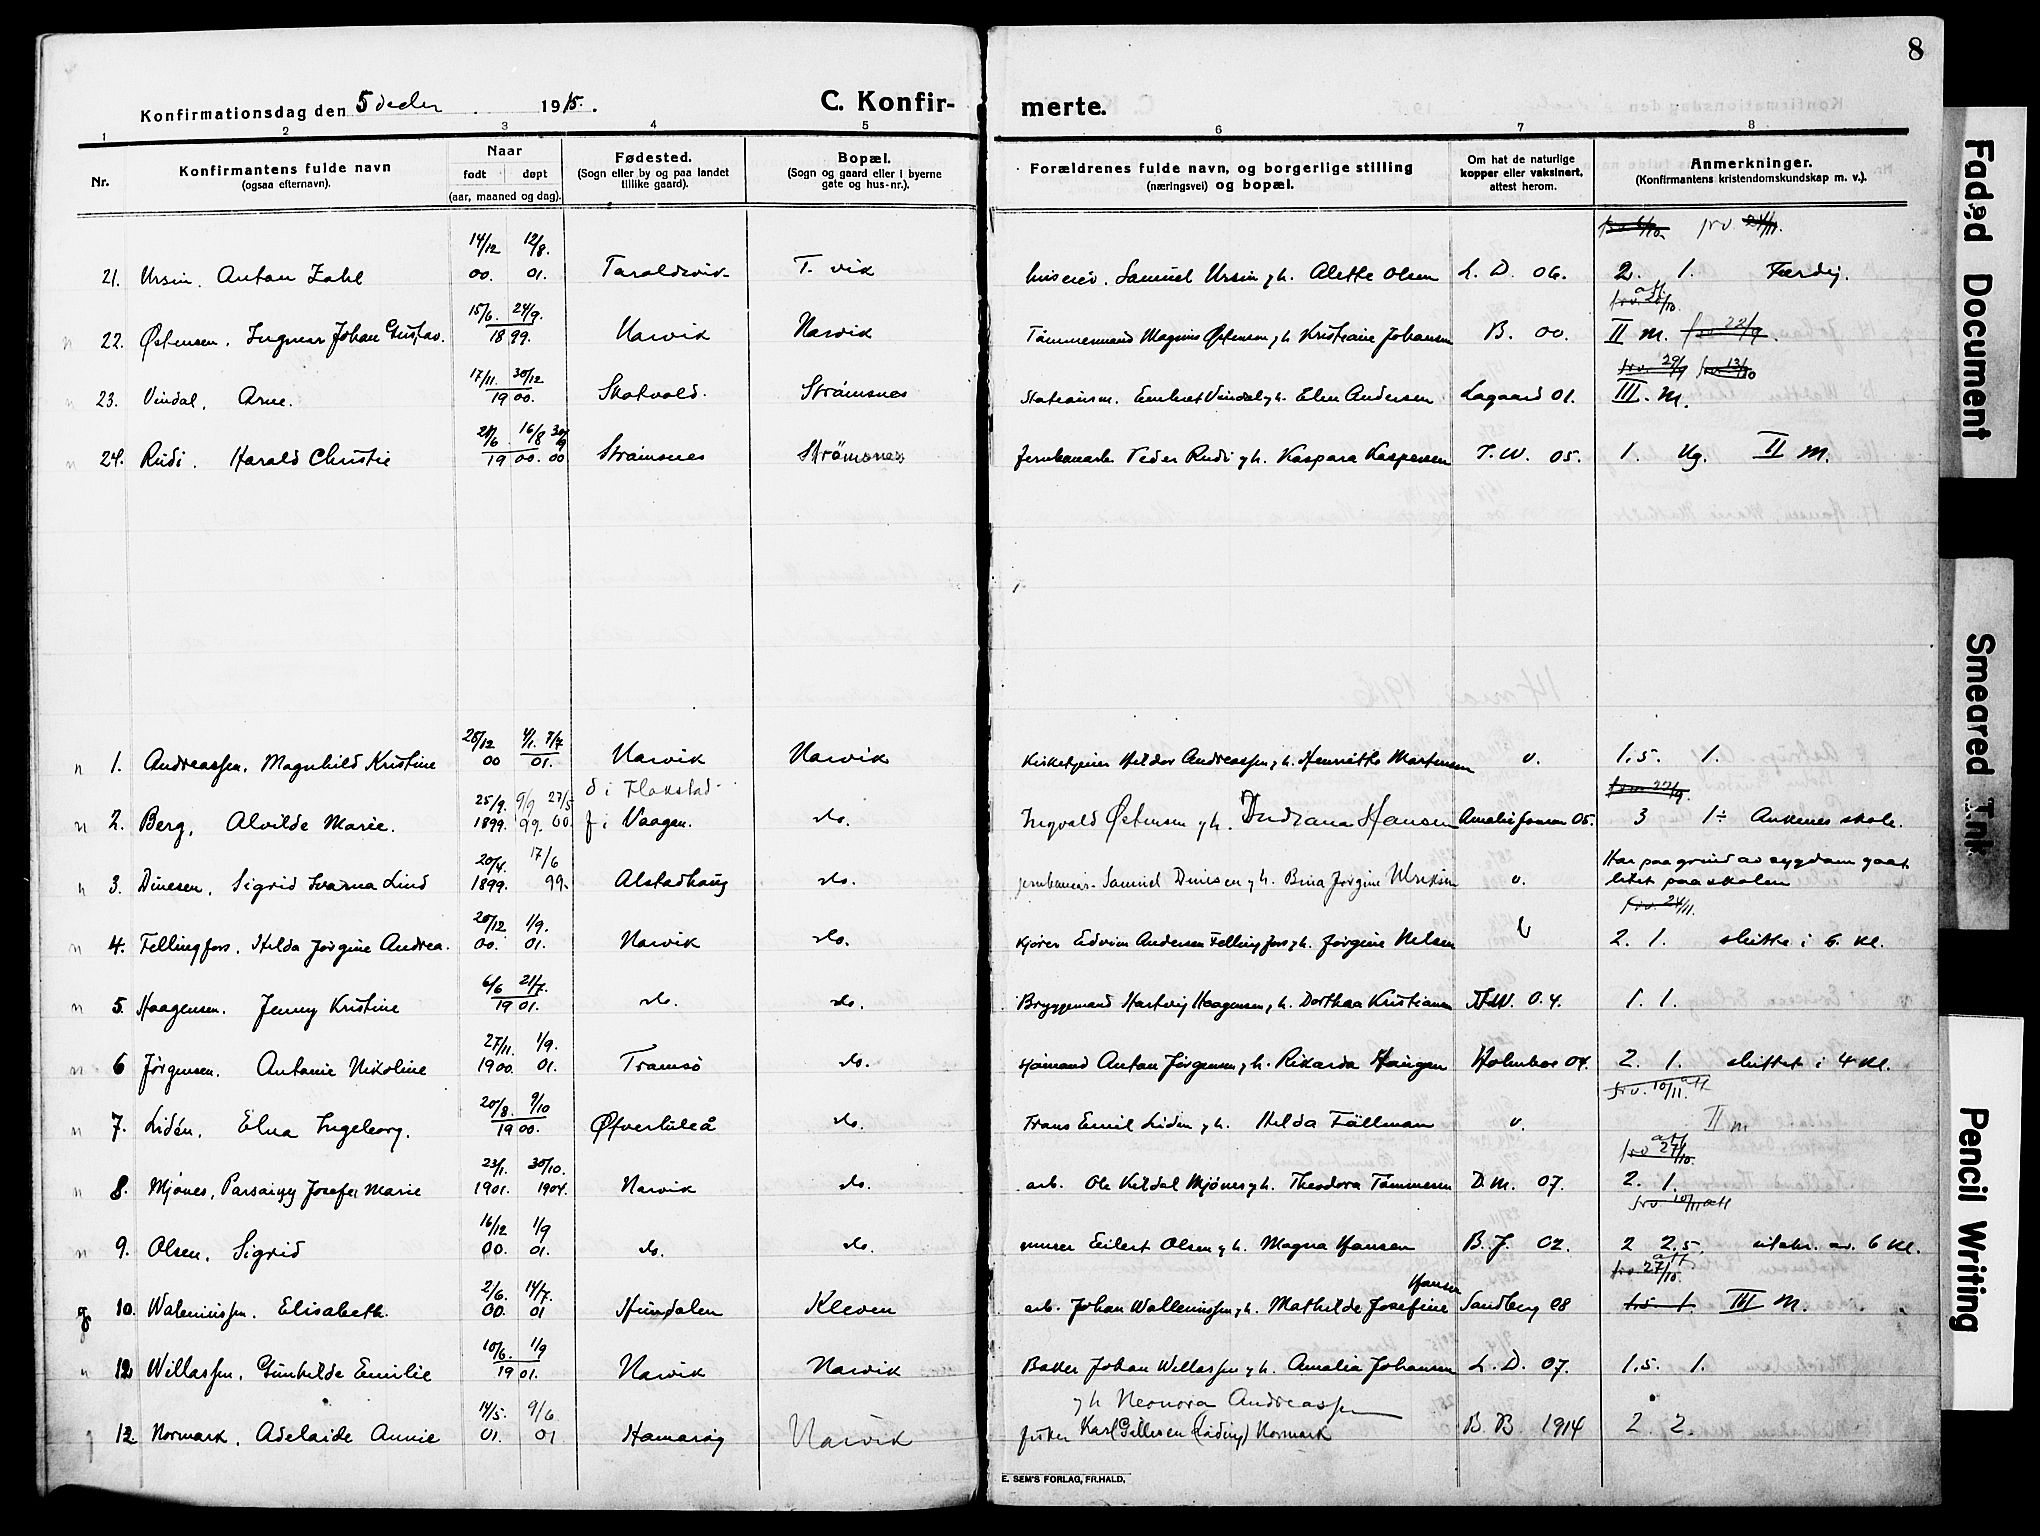 8
Konfirmationsdag den 5 decbr 1915.
C. Konfirmerte.
1 2 3 4 5 6 7 8
Nr.
Konfirmantens fulde navn
(ogsaa efternavn).
Naar
født døpt
(aar, maaned og dag).
Fødested.
(Sogn eller by og paa landet
tillike gaard).
Bopæl.
(Sogn og gaard eller i byerne
gate og hus-nr.).
Forældrenes fulde navn, og borgerlige stilling
(næringsvei) og bopæl.
Om hat de naturlige
kopper eller vaksinert,
attest herom.
Anmerkninger.
(Konfirmantens kristendomskundskap m. v.).
14/12 12/8. frv. 24/11.
21. Ursin, Anton Zahl 00. 01. Taraldsvik T. vik Samuel Ursin g. h. Alette Olsen L. D. 06. 2. 1. Færdig.
15/6. 24/9. frv. 20/10.
22. Østensen, Ingmar Johan Gustav. 1899. Narvik Narvik Tømmermand Magnus Østensen g h Kristiane Johansen B. 00. II M. frv 22/9.
17/11. 30/12 frv. 29/9 frv 13/10
23. Vindal, Arne. 1900. Skatvold. Strømsnes Stationsm. Vindal g h. Elen Andersen Lagaard 01. III. M.
21/6. 16/8 30/9
24. Rudi. Harald Christie 1900. 00 Strømsnes Strømsnes jernbanearb. Peder Rudi g h. Kaspara Kaspersen T. W. 05. 1. Ug. II M.
28/12 4/1. 7/7
n 1. Andreassen, Magnhild Kristine 00 01. Narvik Narvik Kirketjener Hildor Andreassen g. h. Henriette Mortensen v. 1.5. 1.
d i Flakstad
25/9. 9/9 27/5
n 2. Berg, Alvilde Marie. 1899. 99. 00. f i Vaagan. do. Ingvald Østensen g h. Indiana Hansen 05. 3 1÷ Ankenes skole.
20/4. 17/6 Har paa grund av sygdom gaat
n 3. Dinesen, Sigrid Lind 1899. 99. Alstadhaug do. Samuel Dinesen g h. Bina Jørgine Ulriksen v. litet paa skolen
20/12 1/9. frv. 24/11.
n 4. Fellingfors, Hilda Jørgine Andrea. 00. 01. Narvik do. Kjører Edvin Andersen Fellingfors g h. Jørgine Nilsen v 2. 1. sluttet i 6. kl.
6/6 21/7.
n 5. Haagensen. Jenny Kristine 1901. do. do. Bryggemand Hartvig Haagensen g. h. Dorthea Kristiansen 04. 1. 1.
27/11. 1/9.
n 6 Jørgensen. Antonie Nikoline 1900. 01. Tromsø do. Anton Jørgensen g h. Rikarda Haugen Holmboe 04. 2. 1. sluttet i 4 kl.
20/8. 9/10 frv. 10/11. att
n 7. Lidén. Elna Ingeborg. 1900. Øfverluleå do. Frans Emil Lidén g h. Hilda Fällman v. II M
23/1. 30/10. att frv 27/10.
n 8. Mjønes, Josefa Marie 1901. 1904. Narvik do. arb. Ole Kildal Mjønes g h. Theodora D. M. 07. 2. 1.
16/12 1/9 frv 10/11 att
n 9. Olsen, Sigrid 00. 01. do. do. murer Eilert Olsen g h. Magna Hansen B. J. 02. 2 2.5. av. 6 kl.
2/6. 14/7. Hansen att frv. 27/10.
g 10. Waleniussen. Elisabeth. 00. 01 Hundalen Kleven arb. Johan Walleniussen g h. Mathilde Josefine Sandberg 08 1.5 1. III M.
10/6. 1/9
n 12 Willassen, Gunhilde Emilie 1901. Narvik Narvik Baker Johan Willassen g h. Amalia Johansen L. D. 07. 1.5. 1.
g h Neonora Andreassen
14/5. 9/6
g 12 Normark, Adelaide Annie 01. 01 Hamarøy Narvik fisker Karl Normark B. B 1914 2. 2.
E. SEM'S FORLAG, FR.HALD.
Faded Document
Smeared Ink
Pencil Writing